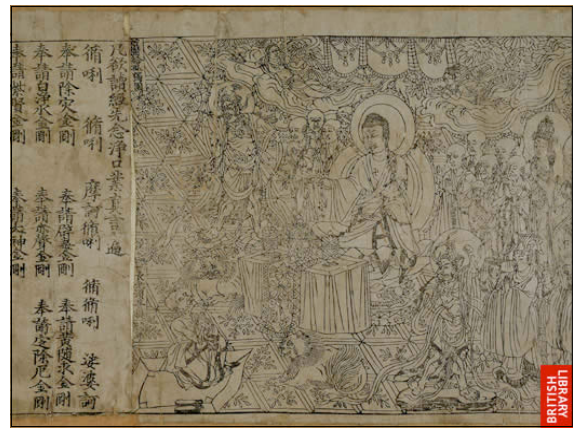 凡欲讀經先念淨口業真言一遍
脩唎 脩唎 摩訶脩唎 脩脩唎 娑婆訶
奉請除灾金剛 奉請辟毒金剛 奉請黃隨求金剛
奉請白淨水金剛 奉請赤聲金剛 奉請定除厄金剛
奉請紫賢金剛 奉請大神金剛
BRITISH
LIBRARY